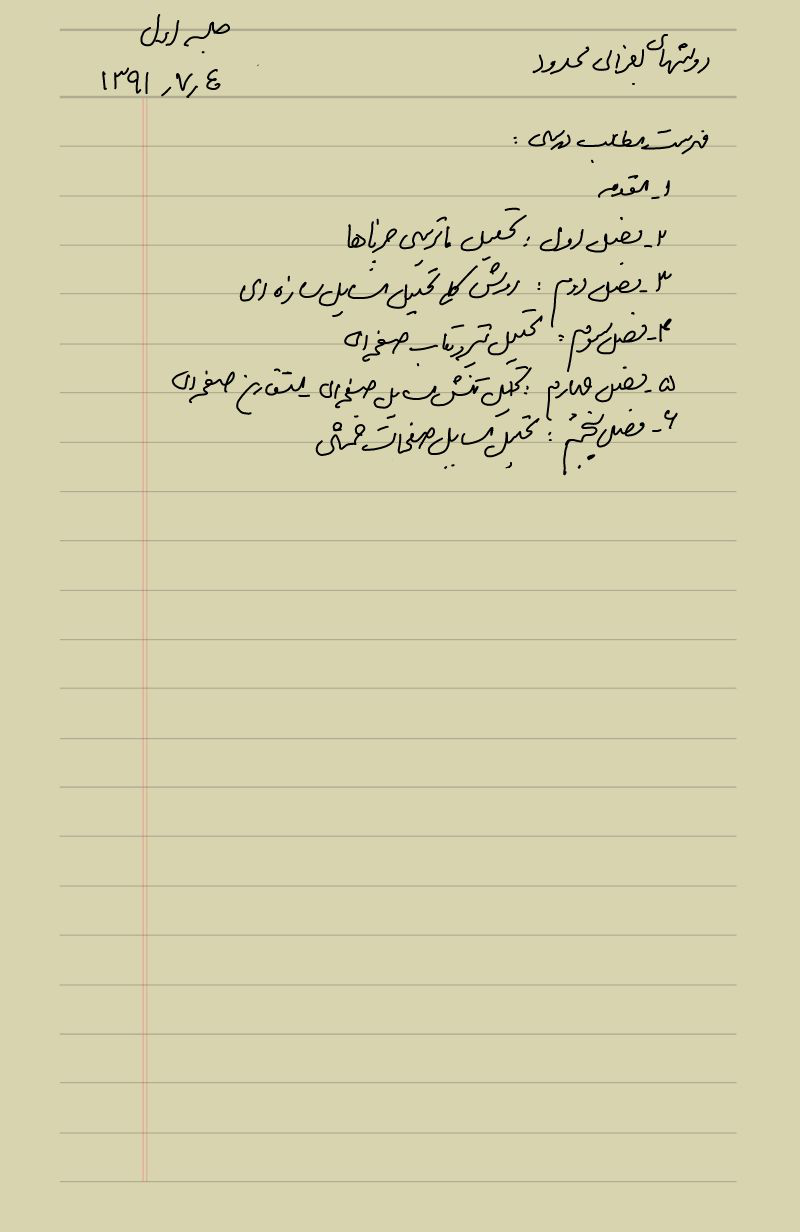 روشهای اجزای محدود
جلسه اول
۱۳۹۱٫۷٫٤
فهرست مطالب درسی :
۱ـ مقدمه
۲ـ فصل اول : تحلیل ماتریسی خرپاها
۳ـ فصل دوم : روش کلی تحلیل مسایل سازه ای
۴ـ فصل سوم : تحلیل تیر و قاب صفحه ای
۵ـ فصل چهارم : تحلیل تنش مسایل صفحه ای ـ متقارن صفحه ای
۶ـ فصل پنجم : تحلیل مسایل صفحات خمشی